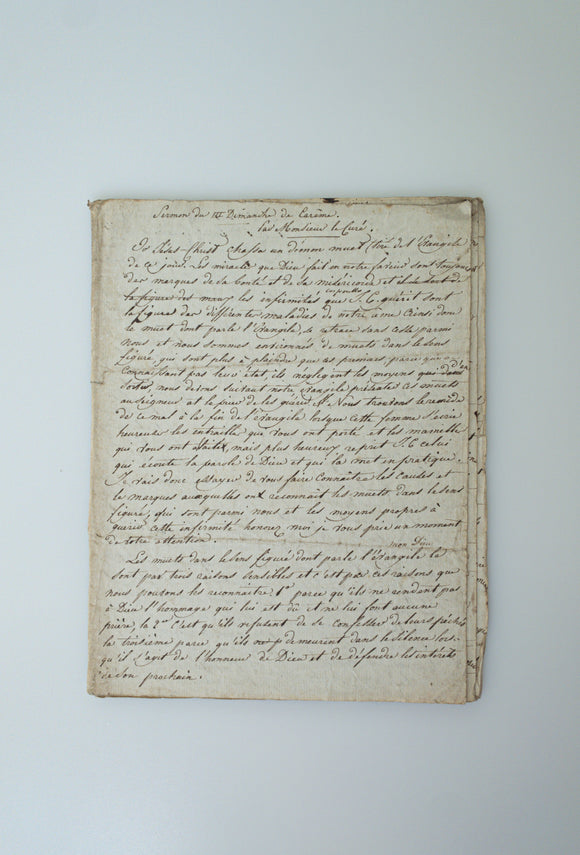 Sermon du III Dimanche de Carême.
Par Monsieur le Curé.
Jesus-Christ chassa un démon muet tiré de l'Evangile
de ce jour. Les miracles que Dieu fait en notre faveur sont toujours
des marques de sa bonté et de sa miséricorde et
corporelles
les infirmités que J. C. guérit sont
la figure des differentes maladies de notre ame ainsi donc
le muet dont parle l'Evangile, se retrace sans cesse parmi
nous et nous sommes environnés de muets dans le sens
figuré, qui sont plus à plaindre que les premiers, parce que ne
connaissant pas leur état, ils négligent les moyens d'en
sortir nous devons suivant notre évangile présenter ces muets
au seigneur et le prier de les guérir. Nous trouvons le remède
de ce mal à la fin de l'évangile lorsque cette femme s'écrie
heureuses les entrailles que vous ont porté et les mamelles
qui vous ont allaité, mais plus heureux reprit J. C celui
qui écoute la parole de Dieu et qui la met en pratique.
Je vais donc essayer de vous faire connaître les causes et
les marques auxquelles on reconnait les muets dans le sens
figuré, qui sont parmi nous et les moyens propres à
guérir cette infirmité honorez moi je vous prie un moment
de votre attention.
mon Dieu
Les muets dans le sens figuré dont parle l'évangile le
sont par trois raisons sensibles et c'est par ces raisons que
nous pouvons les reconnaitre 1º parce qu'ils ne rendent pas
à Dieu l'hommage qui lui est dû et ne lui font aucune
prière, la 2me C'est qu'ils refusent de se confesser de leurs péchés
la troisième parce qu'ils demeurent dans le silence lors-
qu'il s'agit de l'honneur de Dieu et de défendre les intérêts
de son prochain.